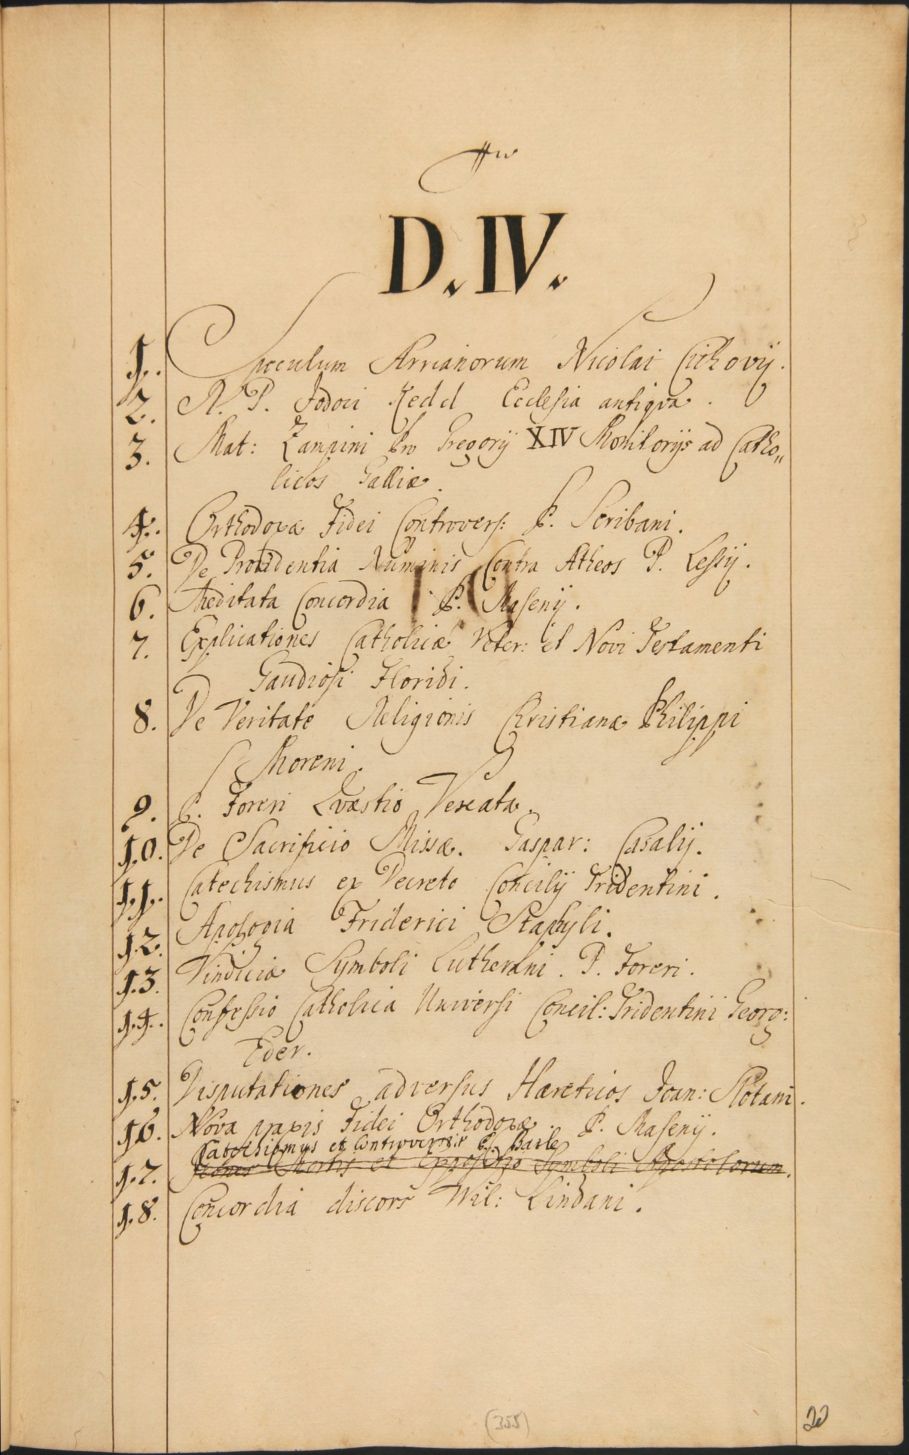 D. IV.
1. Speculum Arrianorum Nicolai Cichovij.
2. R. P. Jodoci Kedd Ecclesia antiqva.
3. Mat: Zampini Pro Gregorij XIV Monitorijs ad Catho„
licos Galliæ.
4. Orthodoxæ Fidei Controvers: P. Scribani.
5. De Providentia Numinis Contra Atheos P. Lessij.
6. Meditata Concordia P. Masenij.
7. Explicationes Catholicæ Veter: et Novi Testamenti
Gaudiosi Floridi.
8. De Veritate Religionis Christianæ Philippi
Moreni.
9. P. Foreri Qvæstio Vexata.
10. De Sacrificio Missæ. Gaspar: Casalij.
11. Catechismus ex Decreto Concilij Tridentini.
12. Apologia Friderici Staphyli.
13. Vindiciæ Symboli Lutherani. P. Foreri.
14. Confessio Catholica Universi Concil: Tridentini Georg:
Eder.
15. Disputationes adversus Hæreticos Joan: Slotani.
16. Nova praxis Fidei Orthodoxæ P. Masenij.
Catechismus et Controversiæ P.
17. Mortis et Expositio Symboli Apostolorum.
18. Concordia discors Wil: Lindani.
(355)
22